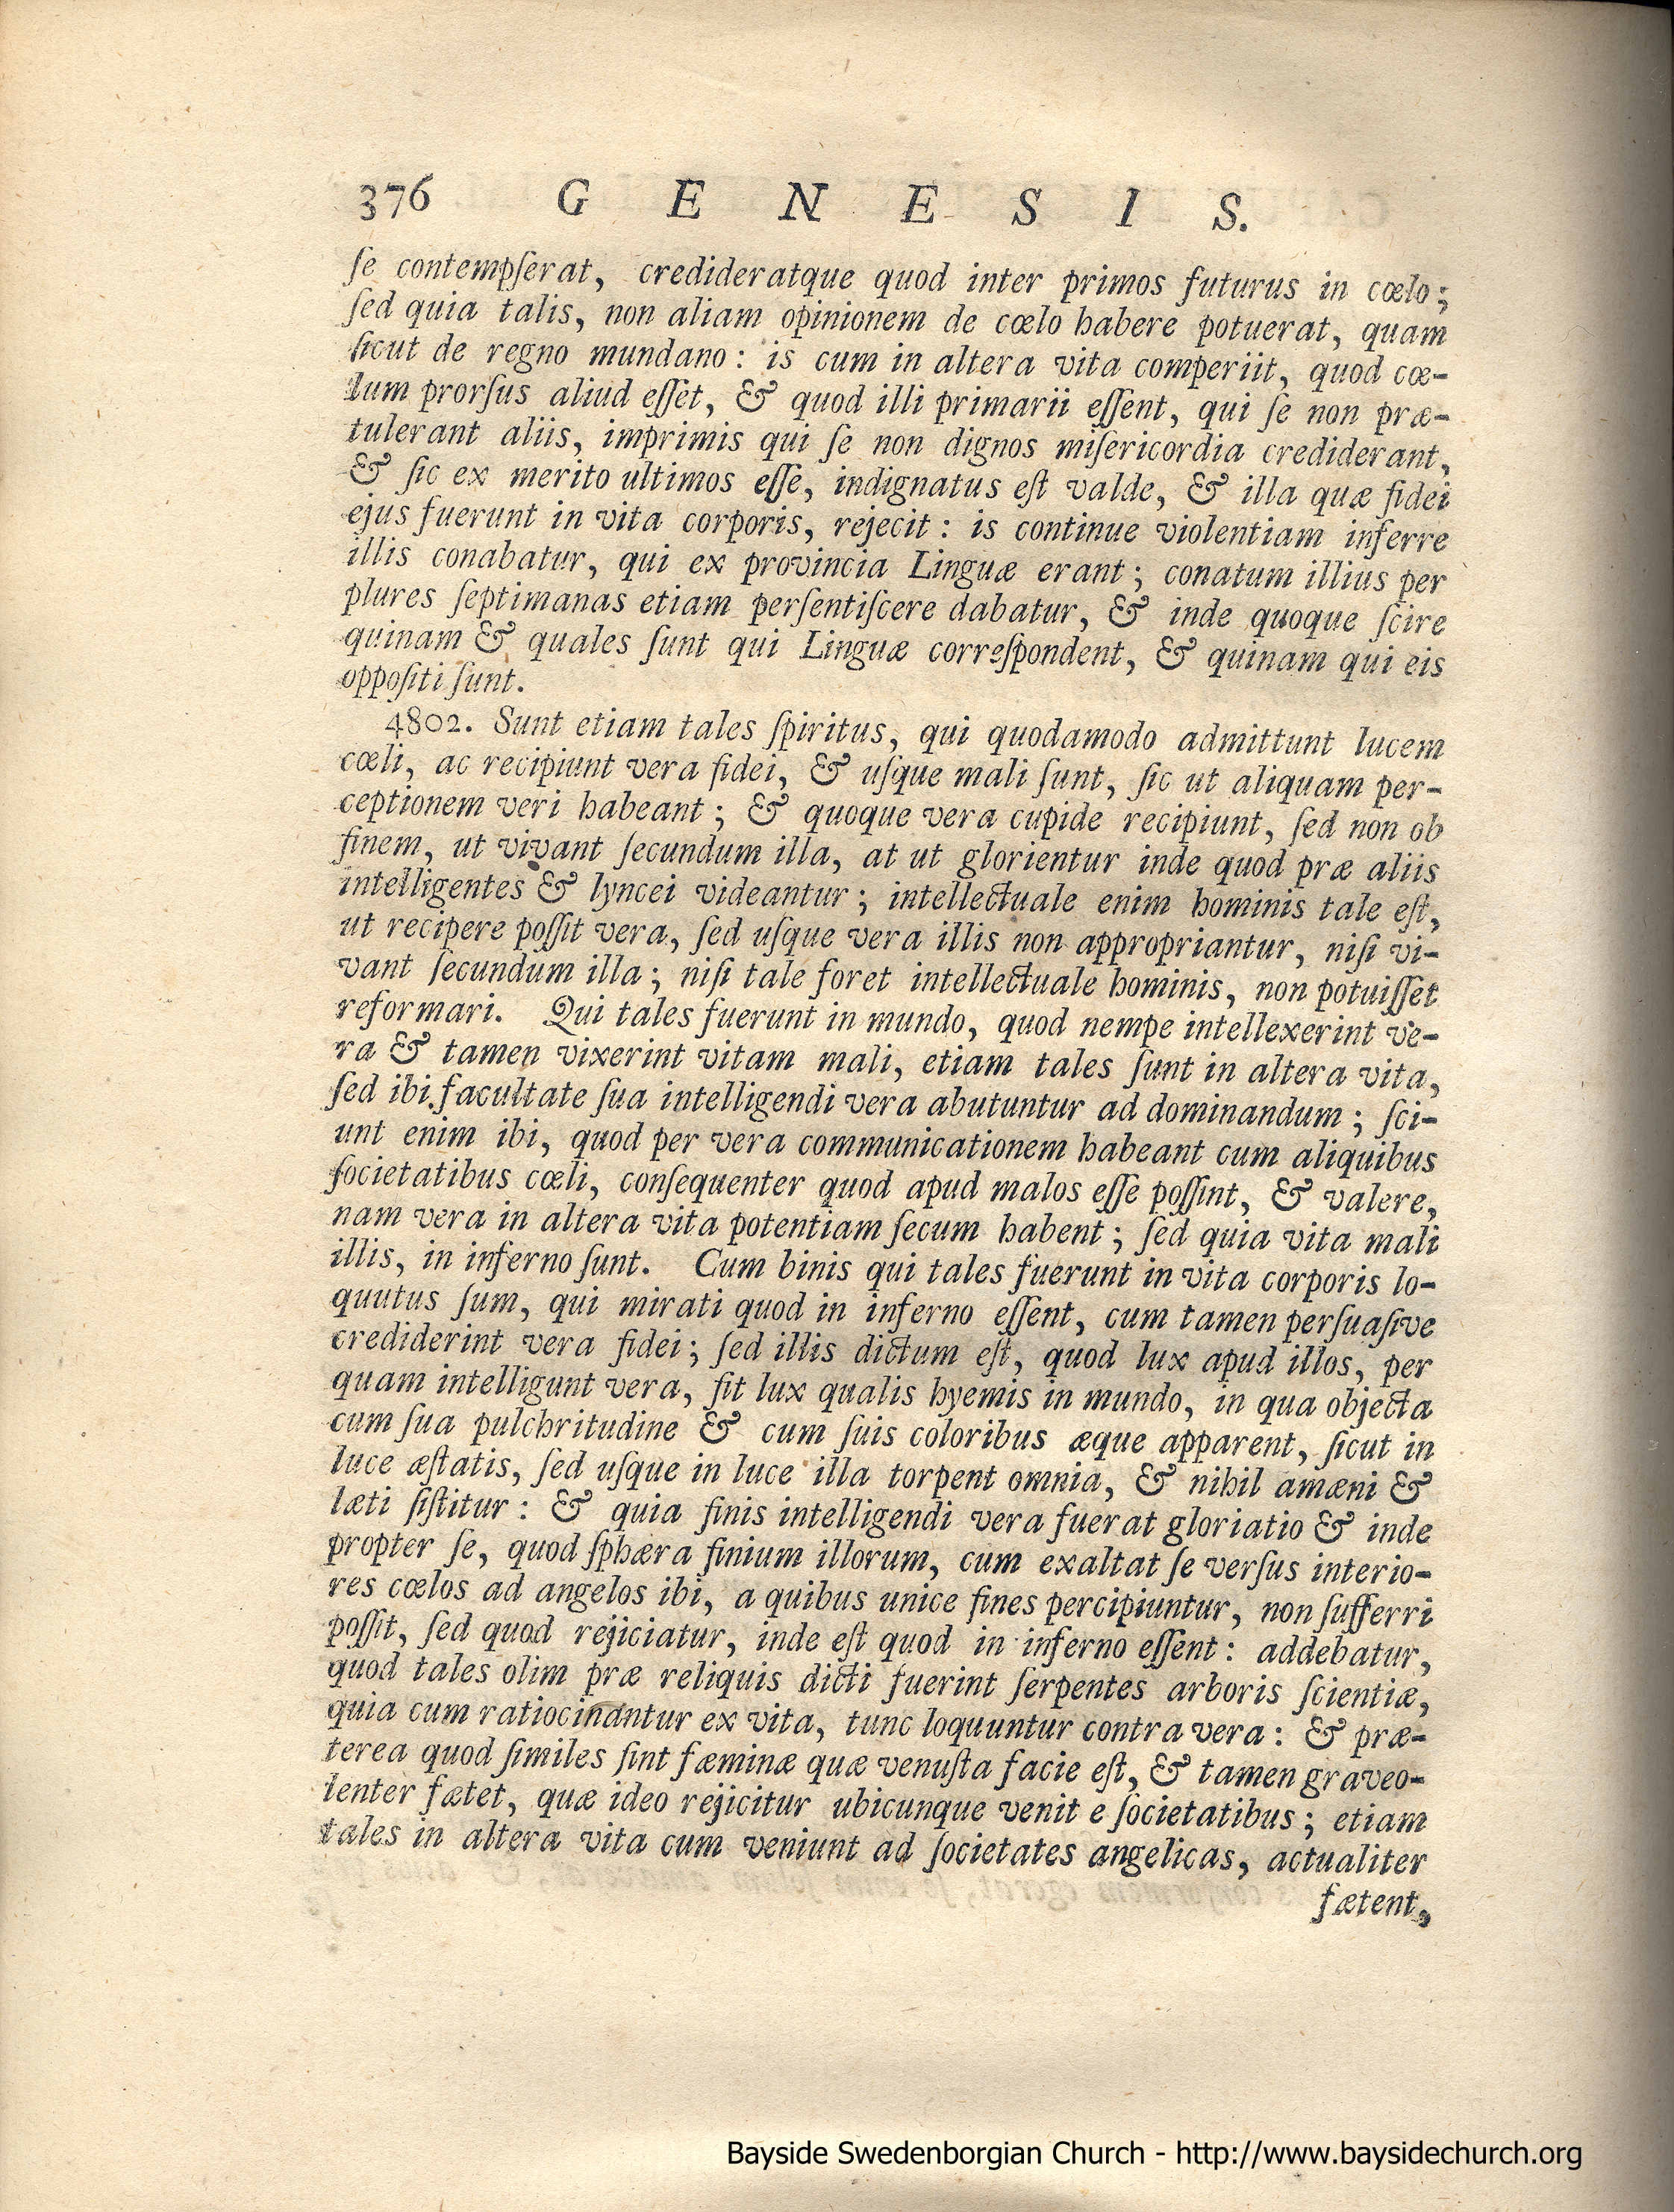 376 G E N E S I S.
ſe contempſerat, credideratque quod inter primos futurus in cœlo;
ſed quia talis, non aliam opinionem de cœlo habere potuerat, quam
ſicut de regno mundano: is cum in altera vita comperiit, quod cœ-
lum prorſus aliud eſſet, & quod illi primarii eſſent, qui ſe non præ-
tulerant aliis, imprimis qui ſe non dignos miſericordia crediderant,
& ſic ex merito ultimos eſſe, indignatus eſt valde, & illa quæ fidei
ejus fuerunt in vita corporis, rejecit: is continue violentiam inferre
illis conabatur, qui ex provincia Linguæ erant; conatum illius per
plures ſeptimanas etiam perſentiſcere dabatur, & inde quoque ſcire
quinam & quales ſunt qui Linguæ correſpondent, & quinam qui eis
oppoſiti ſunt.
4802. Sunt etiam tales ſpiritus, qui quodamodo admittunt lucem
cœli, ac recipiunt vera fidei, & uſque mali ſunt, ſic ut aliquam per-
ceptionem veri habeant; & quoque vera cupide recipiunt, ſed non ob
finem, ut vivant ſecundum illa, at ut glorientur inde quod præ aliis
intelligentes & lyncei videantur; intellectuale enim hominis tale eſt,
ut recipere poſſit vera, ſed uſque vera illis non appropriantur, niſi vi-
vant ſecundum illa; niſi tale foret intellectuale hominis, non potuiſſet
reformari. Qui tales fuerunt in mundo, quod nempe intellexerint ve-
ra & tamen vixerint vitam mali, etiam tales ſunt in altera vita,
ſed ibi facultate ſua intelligendi vera abutuntur ad dominandum; ſci-
unt enim ibi, quod per vera communicationem habeant cum aliquibus
ſocietatibus cœli, conſequenter quod apud malos eſſe poſſint, & valere,
nam vera in altera vita potentiam ſecum habent; ſed quia vita mali
illis, in inferno ſunt. Cum binis qui tales fuerunt in vita corporis lo-
quutus ſum, qui mirati quod in inferno eſſent, cum tamen perſuaſive
crediderint vera fidei; ſed illis dictum eſt, quod lux apud illos, per
quam intelligunt vera, ſit lux qualis hyemis in mundo, in qua objecta
cum ſua pulchritudine & cum ſuis coloribus æque apparent, ſicut in
luce æſtatis, ſed uſque in luce illa torpent omnia, & nihil amæni &
læti ſiſtitur: & quia finis intelligendi vera fuerat gloriatio & inde
propter ſe, quod ſphæra finium illorum, cum exaltat ſe verſus interio-
res cœlos ad angelos ibi, a quibus unice fines percipiuntur, non ſufferri
poſſit, ſed quod rejiciatur, inde eſt quod in inferno eſſent: addebatur,
quod tales olim præ reliquis dicti fuerint ſerpentes arboris ſcientiæ,
quia cum ratiocinantur ex vita, tunc loquuntur contra vera: & præ-
terea quod ſimiles ſint fæminæ quæ venuſta facie eſt, & tamen graveo-
lenter fætet, quæ ideo rejicitur ubicunque venit e ſocietatibus; etiam
tales in altera vita cum veniunt ad ſocietates angelicas, actualiter
fætent,
Bayside Swedenborgian Church - http://www.baysidechurch.org